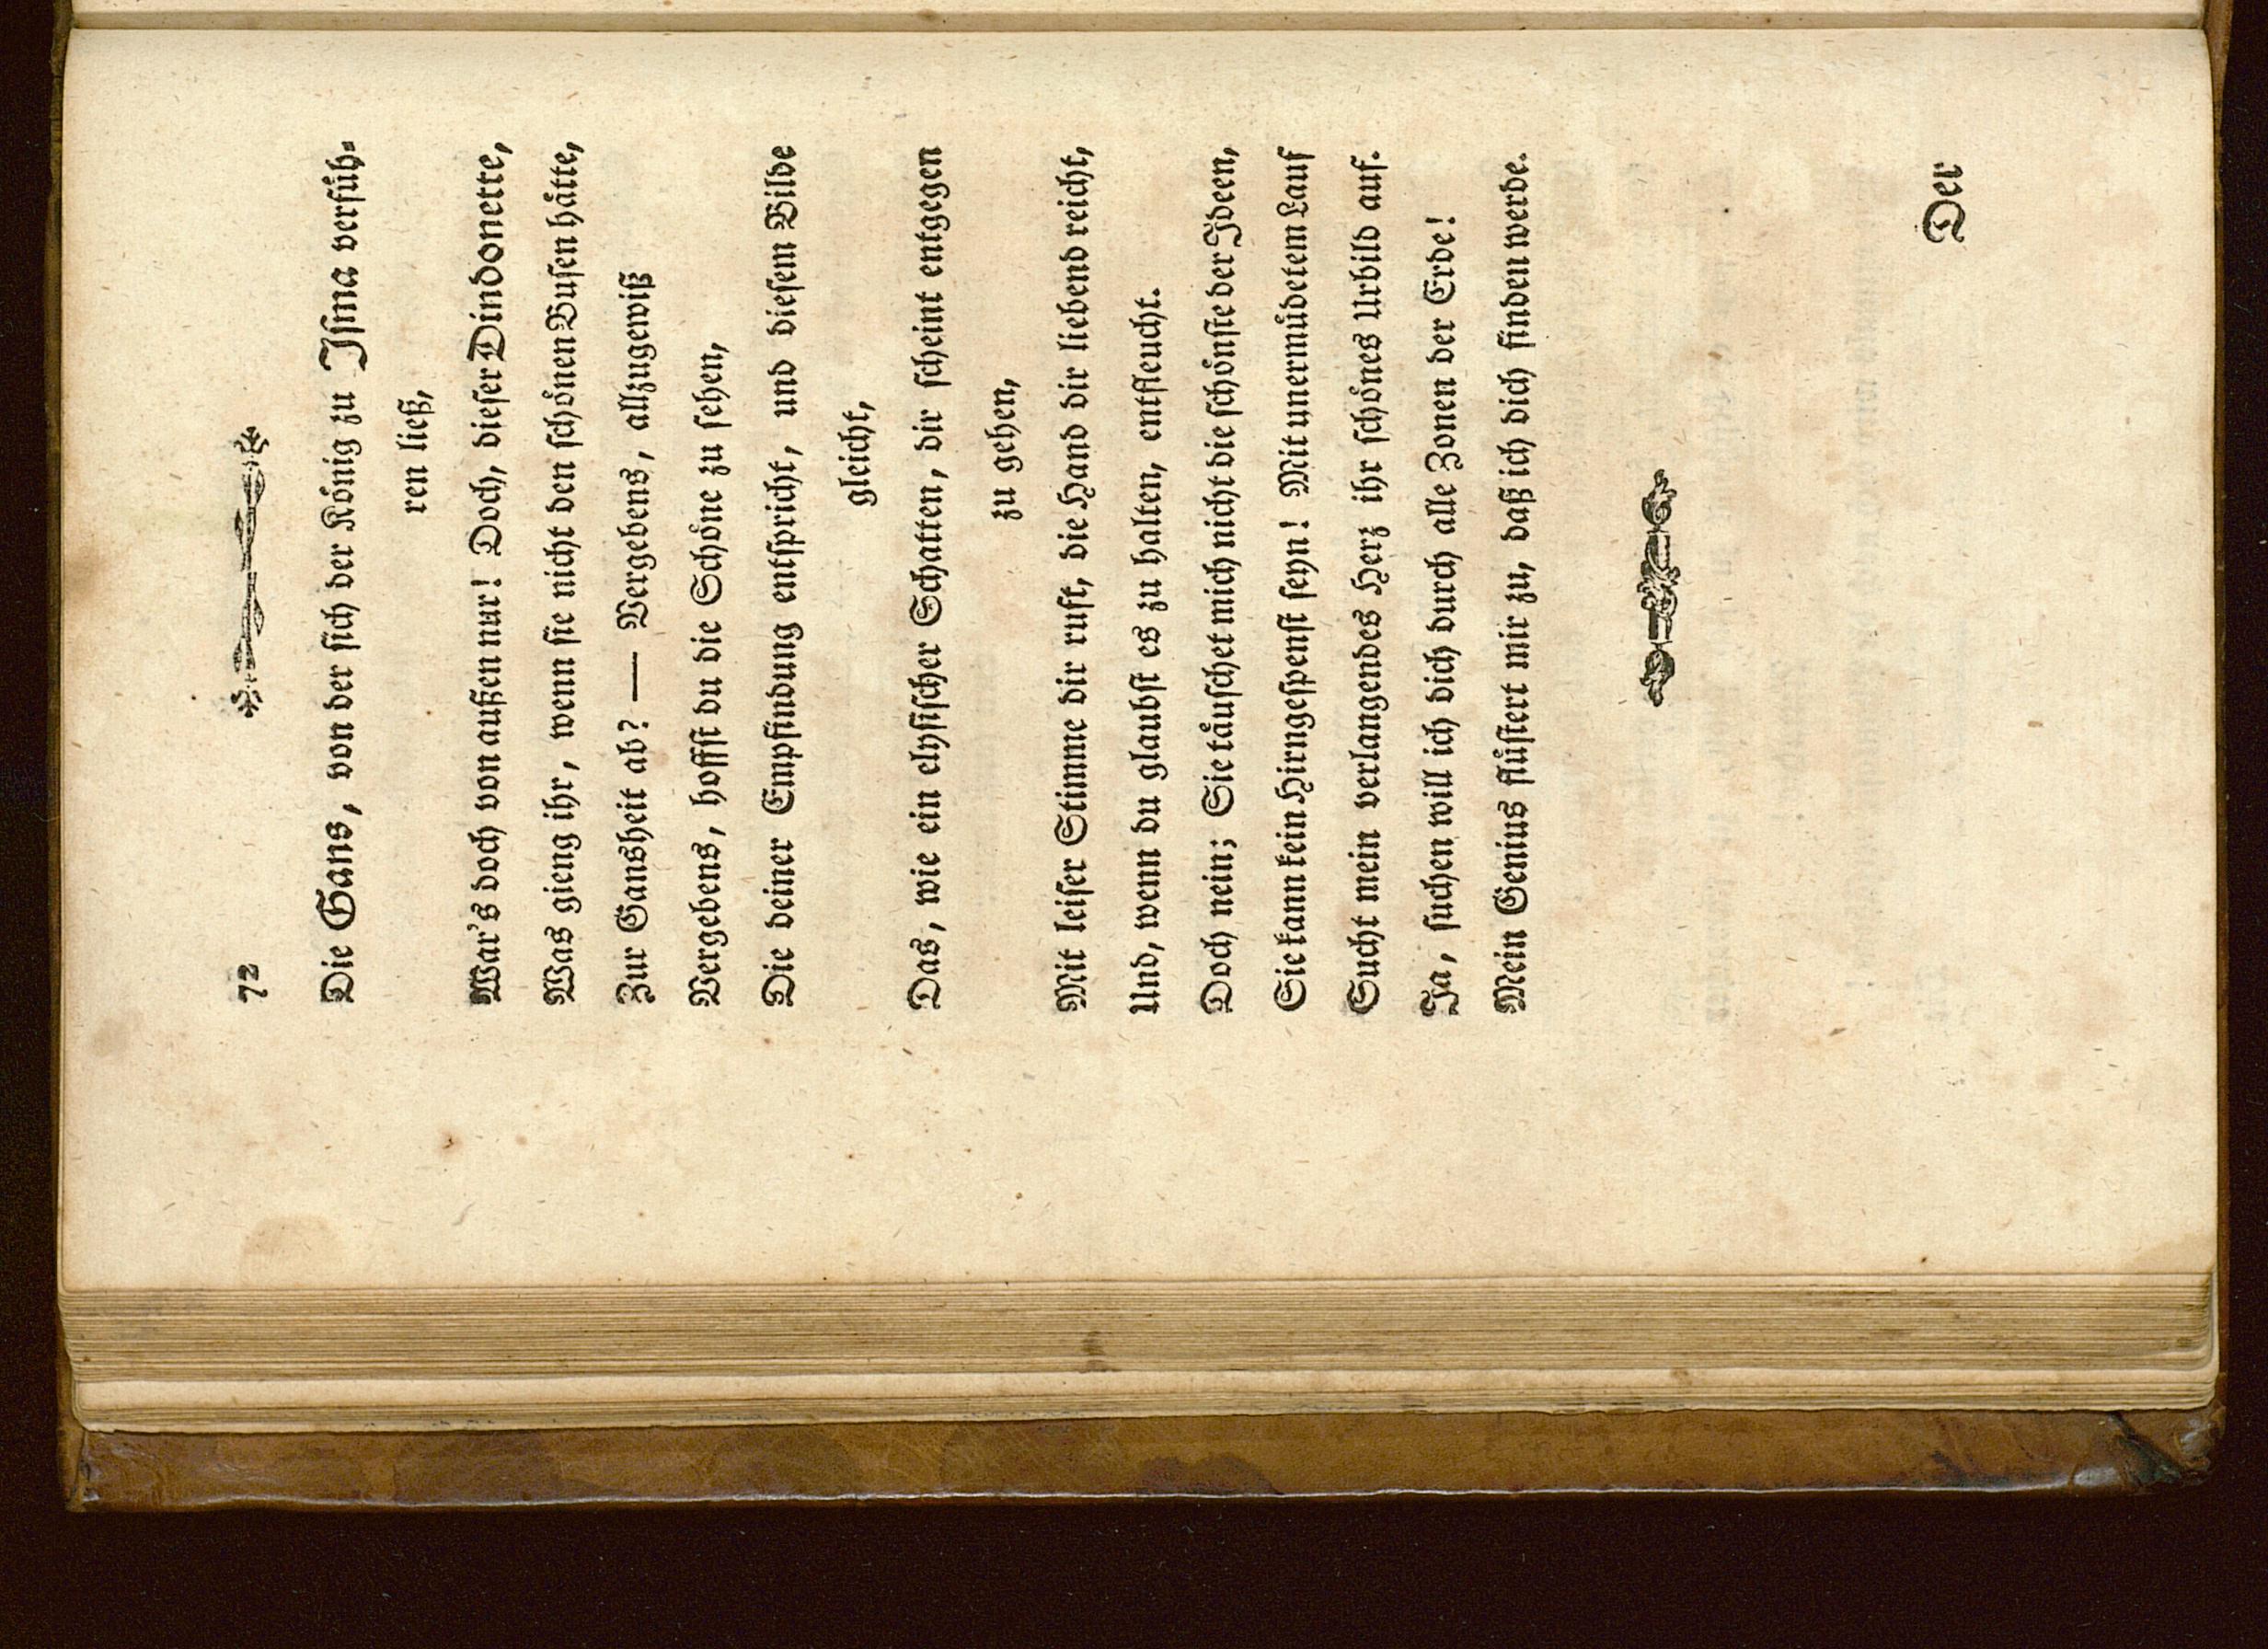 72
Die Gans, von der ſich der König zu Iſma verfüh-
ren ließ,
War's doch von außen nur! Doch, dieſer Dindonette,
Was gieng ihr, wenn ſie nicht den ſchönen Buſen hätte,
Zur Gansheit ab? — Vergebens, allzugewiß
Vergebens, hoffſt du die Schöne zu ſehen,
Die deiner Empfindung entſpricht, und dieſem Bilde
gleicht,
Das, wie ein elyſiſcher Schatten, dir ſcheint entgegen
zu gehen,
Mit leiſer Stimme dir ruft, die Hand dir liebend reicht,
Und, wenn du glaubſt es zu halten, entfleucht.
Doch nein; Sie täuſchet mich nicht die ſchönſte der Ideen,
Sie kann kein Hirngeſpenſt ſeyn! Mit unermüdetem Lauf
Sucht mein verlangendes Herz ihr ſchönes Urbild auf.
Ja, ſuchen will ich dich durch alle Zonen der Erde!
Mein Genius flüſtert mir zu, daß ich dich finden werde.
Der